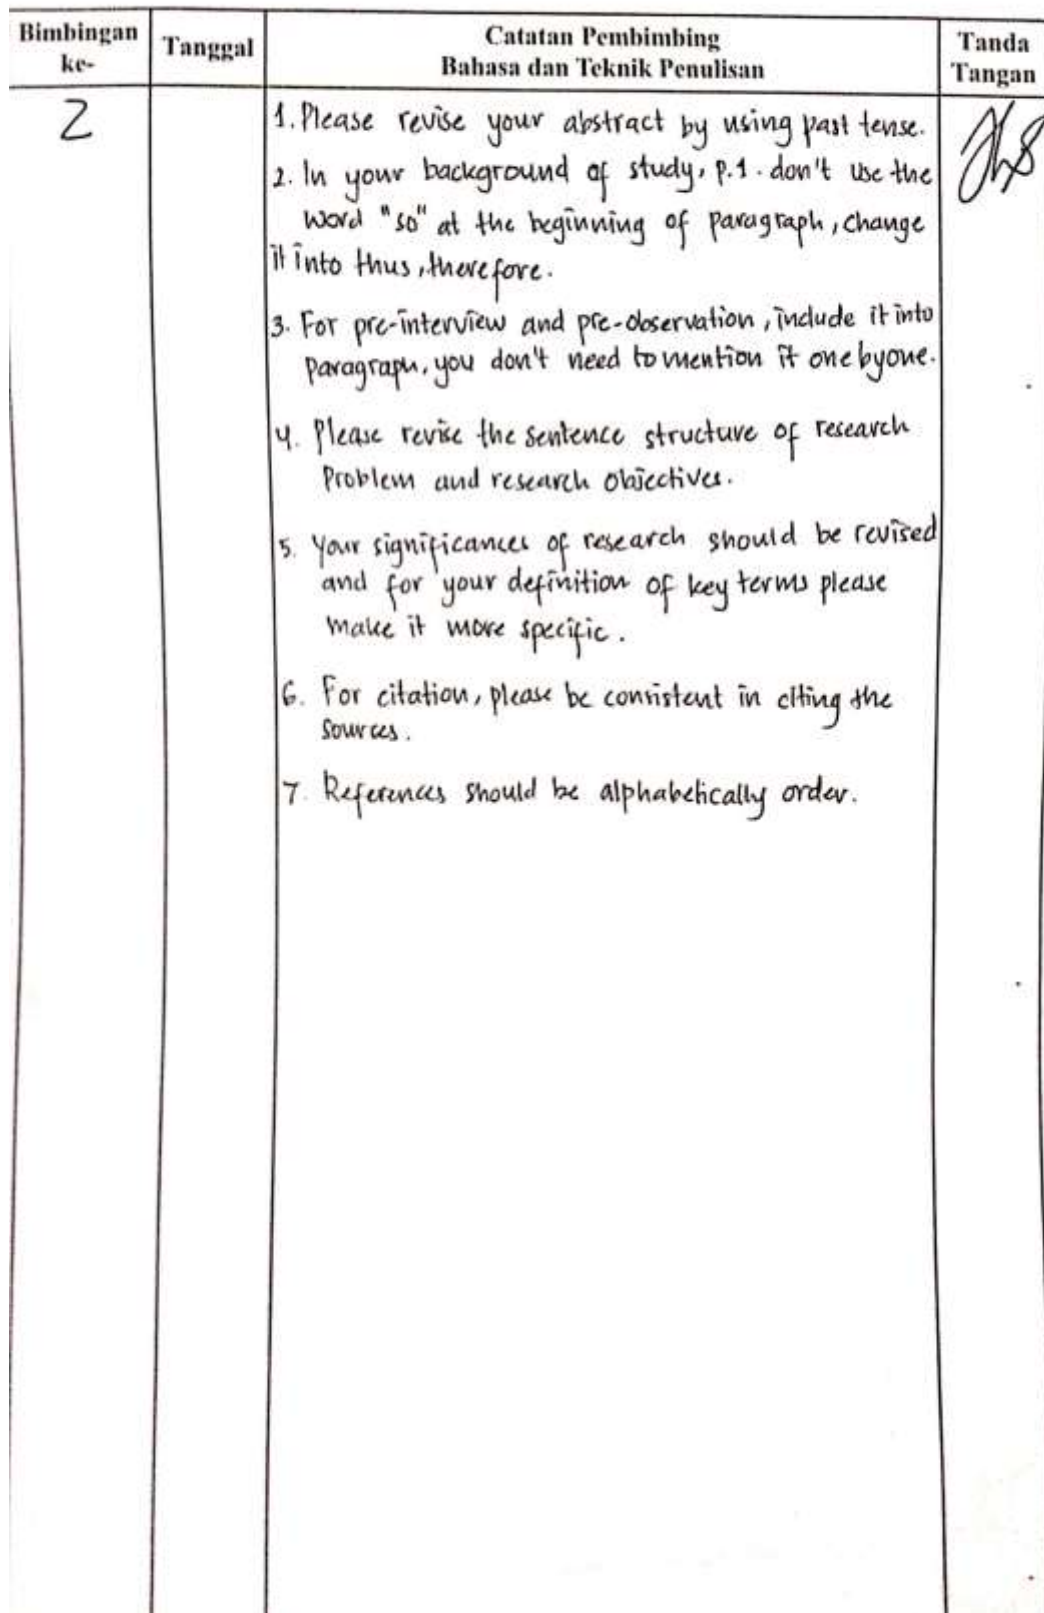 Bimbingan ke-
Tanggal
Catatan Pembimbing
Bahasa dan Teknik Penulisan
Tanda Tangan
2
1. Please revise your abstract by using past tense.
2. In your background of study, p.1. don't use the
word "so" at the beginning of paragraph, change
it into thus, therefore.
3. For pre-interview and pre-observation, include it into
paragraph, you don't need to mention it one by one.
4. Please revise the sentence structure of research
Problem and research objectives.
5. Your significances of research should be revised
and for your definition of key terms please
make it more specific.
6. For citation, please be consistent in citing the
sources.
7. References should be alphabetically order.